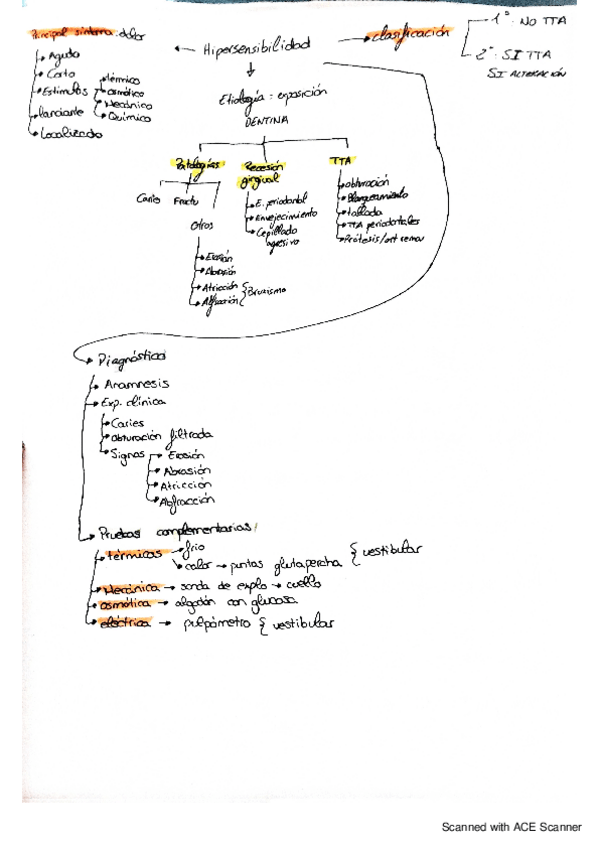 Principal síntoma: dolor
Agudo
Corto
Estímulos
térmico
osmótico
Mecánico
Químico
lanciante
Localizado
Hipersensibilidad
clasificación
1º: NO TTA
2º: SI TTA
SI ALTERACIÓN
Etiología: exposición
DENTINA
Patologías
Caries Fractu
Otros
Erosión
Abrasión
Atricción
Abfracción
Bruxismo
Recesión
gingival
E. periodontal
Envejecimiento
Cepillado
agresivo
TTA
obturación
Blanqueamiento
tallada
TTA periodontales
Prótesis/ort remov
Diagnóstico
Anamnesis
Exp. clínica
Caries
obturación filtrada
Signos
Erosión
Abrasión
Atricción
Abfracción
Pruebas complementarias
térmicas
frío
calor → puntas glutapercha { vestibular
Mecánica → sonda de explo → cuello
osmótica → algodón con glucosa
eléctrica → pulpómetro { vestibular
Scanned with ACE Scanner